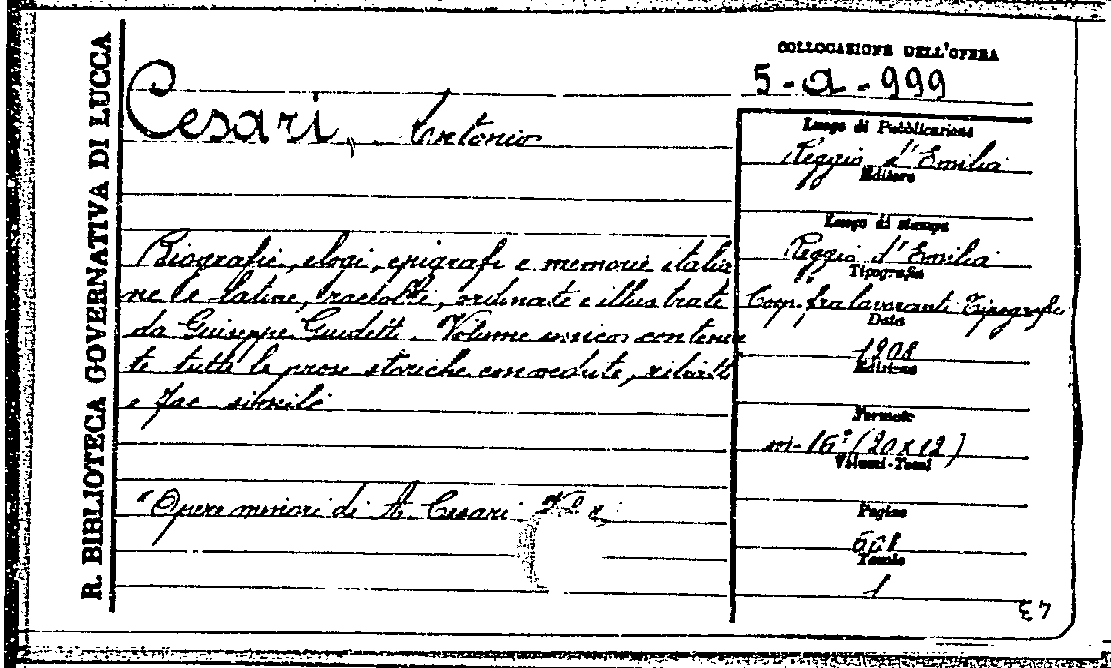 R. BIBLIOTECA GOVERNATIVA DI LUCCA
COLLOCAZIONE DELL'OPERA
5-a-999
Cesari, Antonio
Luogo di Pubblicazione
Reggio d'Emilia
Editore
Luogo di stampa
Reggio d'Emilia
Tipografia
Coop. fra lavoranti Tipografi
Data
1908
Edizione
Formato
in-16° (20x12)
Volumi-Tomi
Pagine
608
Tavole
1
Biografie, elogi, epigrafi e memorie italia
ne e latine, raccolte, ordinate e illustrate
da Giuseppe Guidetti. Volume unico contenen
te tutte le prose storiche con vedute, ritratti
e fac simile
"Opere minori di A. Cesari